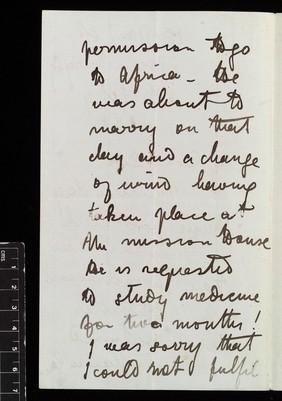 permission to go
to Africa - He
was about to
marry on that
day and a change
of wind having
taken place at
the mission House
he is requested
to study medicine
for two months!
I was sorry that
I could not fulfil